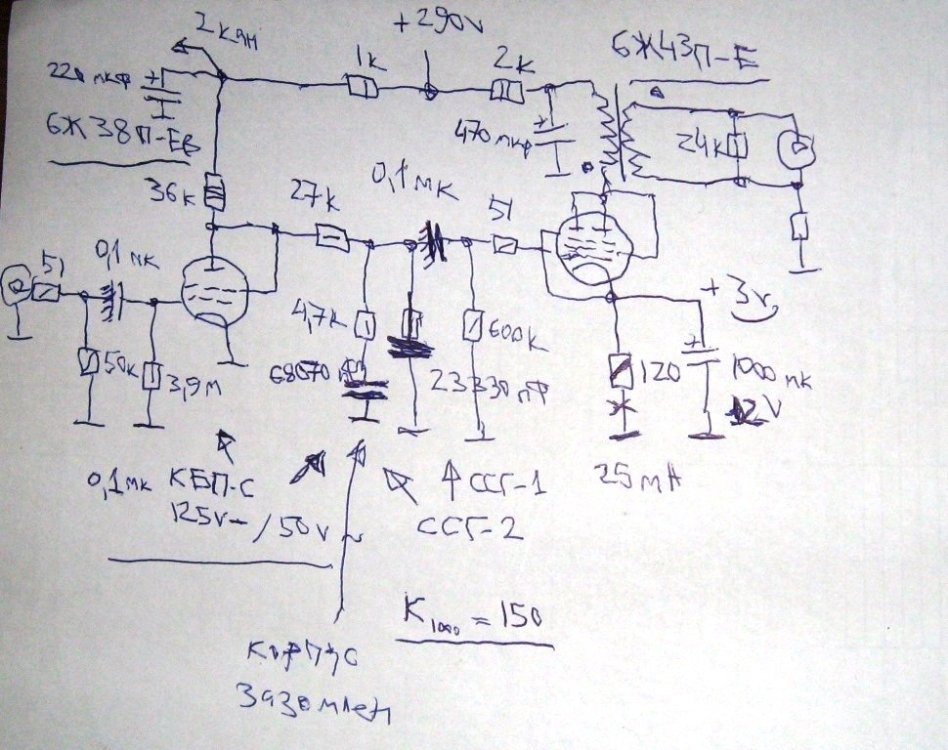 2 кан
+290V
6Ж43П-Е
1k
2k
220 мкф
+
6Ж38П-ЕВ
470 мкф
+
24k
36k
27k
0,1 мк
51
51
0,1 мк
+3V
4,7k
600k
50k
3,9м
68070 пф
23330 пф
120
+
1000 мк
12V
0,1мк КБП-С
125V- / 50V ~
ССГ-1
ССГ-2
25mA
K1000 = 150
корпус
заземлен